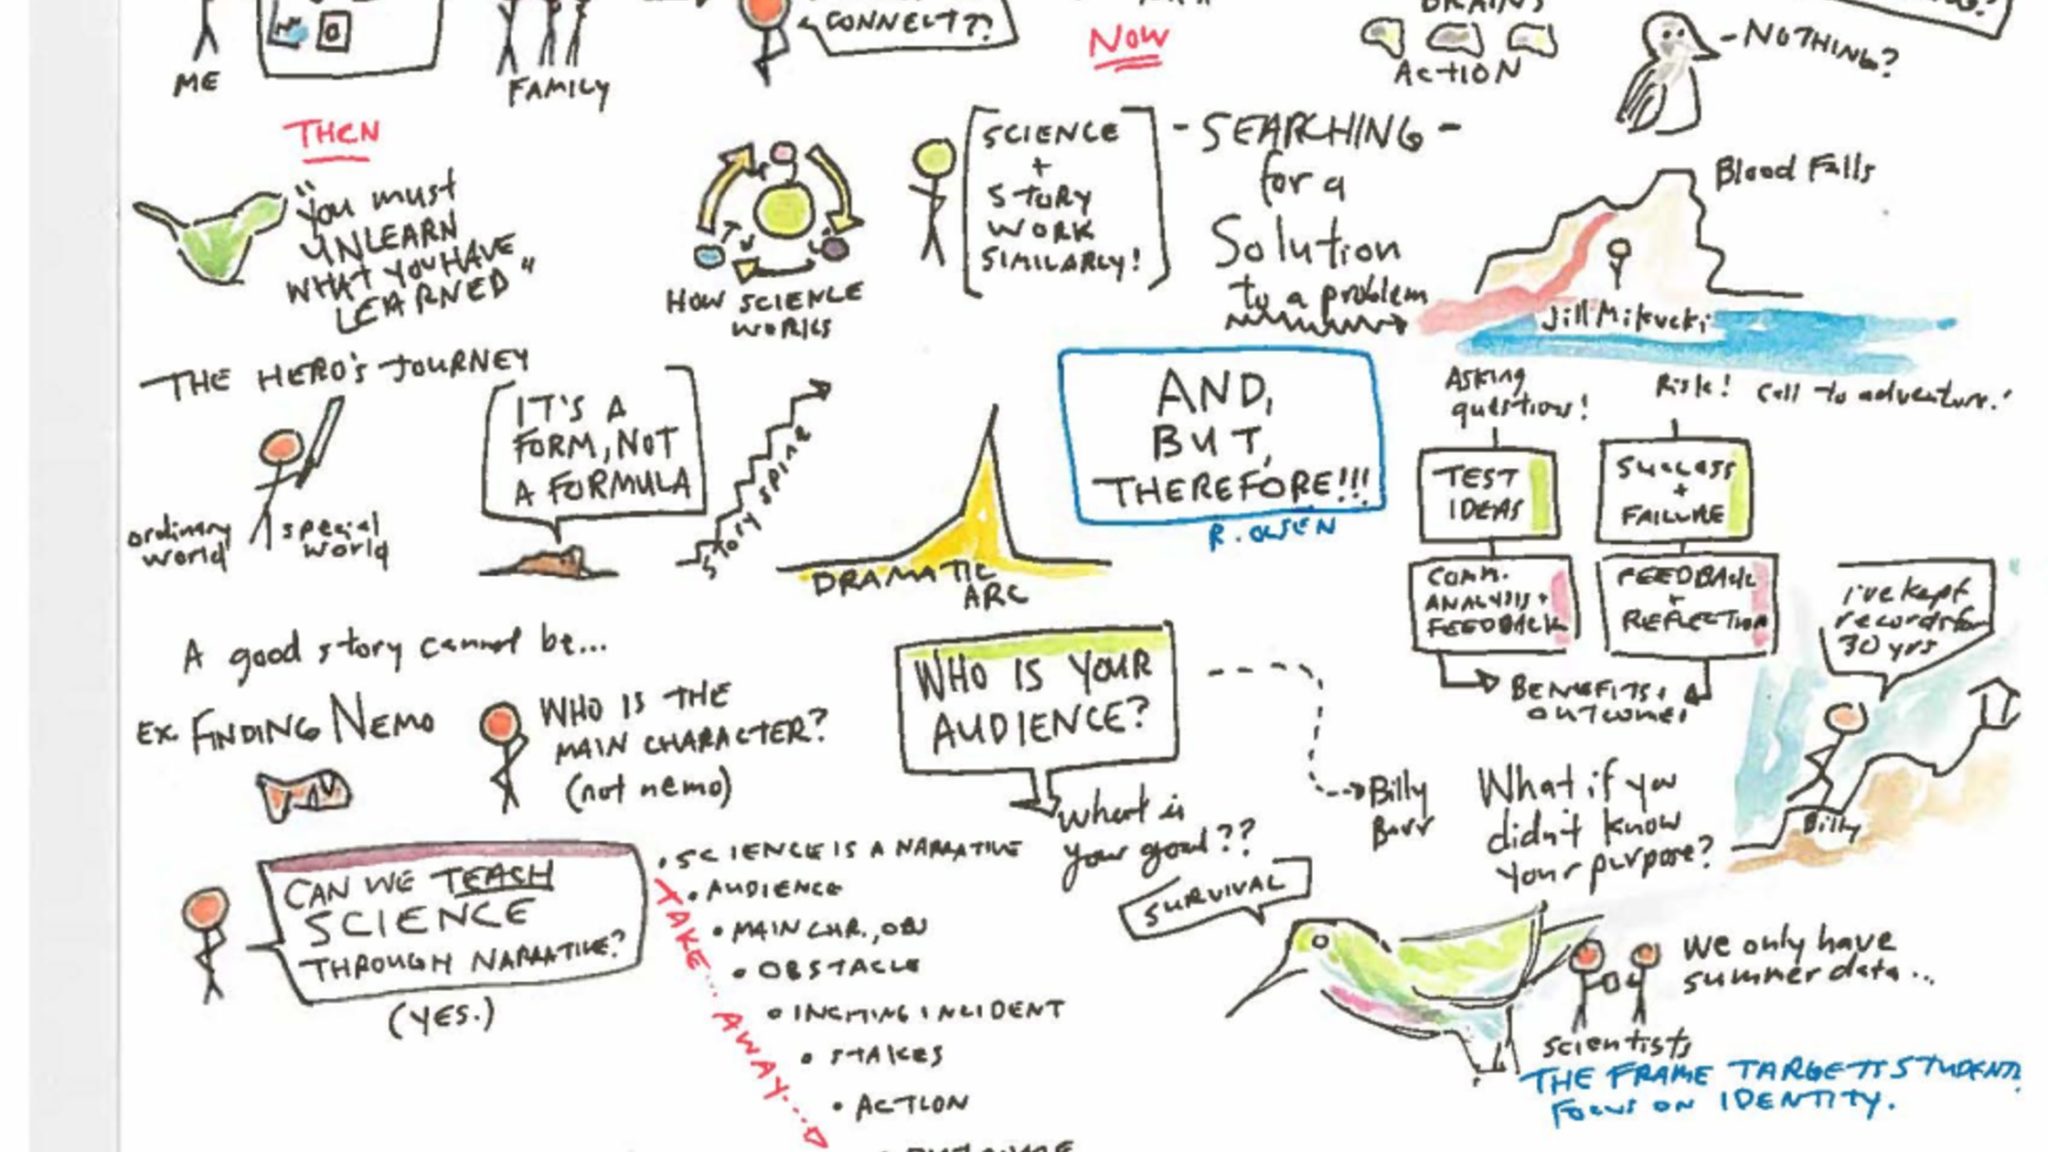 CONNECT??
NOW
BRAINS
ACTION
-NOTHING?
ME
FAMILY
THEN
"You must
UNLEARN
WHAT YOU HAVE
LEARNED"
HOW SCIENCE
WORKS
SCIENCE
+
STORY
WORK
SIMILARLY!
- SEARCHING -
for a
Solution
to a problem
Blood Falls
Jill Mikucki
THE HERO'S JOURNEY
ordinary
world
special
world
IT'S A
FORM, NOT
A FORMULA
STORY SPINE
DRAMATIC
ARC
AND,
BUT,
THEREFORE!!!
R. OLSEN
Asking
questions!
Risk! Call to adventure!
TEST
IDEAS
SUCCESS
+
FAILURE
COMM.
ANALYSIS +
FEEDBACK
FEEDBACK
+
REFLECTION
BENEFITS +
OUTCOMES
i've kept
records for
30 yrs
Billy
A good story cannot be...
Ex. FINDING NEMO
WHO IS THE
MAIN CHARACTER?
(not nemo)
WHO IS YOUR
AUDIENCE?
what is
your goal??
Billy
Barr
What if you
didn't know
your purpose?
CAN WE TEACH
SCIENCE
THROUGH NARRATIVE?
(YES.)
TAKE...AWAY...
• SCIENCE IS A NARRATIVE
• AUDIENCE
• MAIN CHR., OBJ
• OBSTACLE
• INCITING INCIDENT
• STAKES
• ACTION
SURVIVAL
We only have
summer data...
scientists
THE FRAME TARGETS STUDENTS
FOCUS ON IDENTITY.